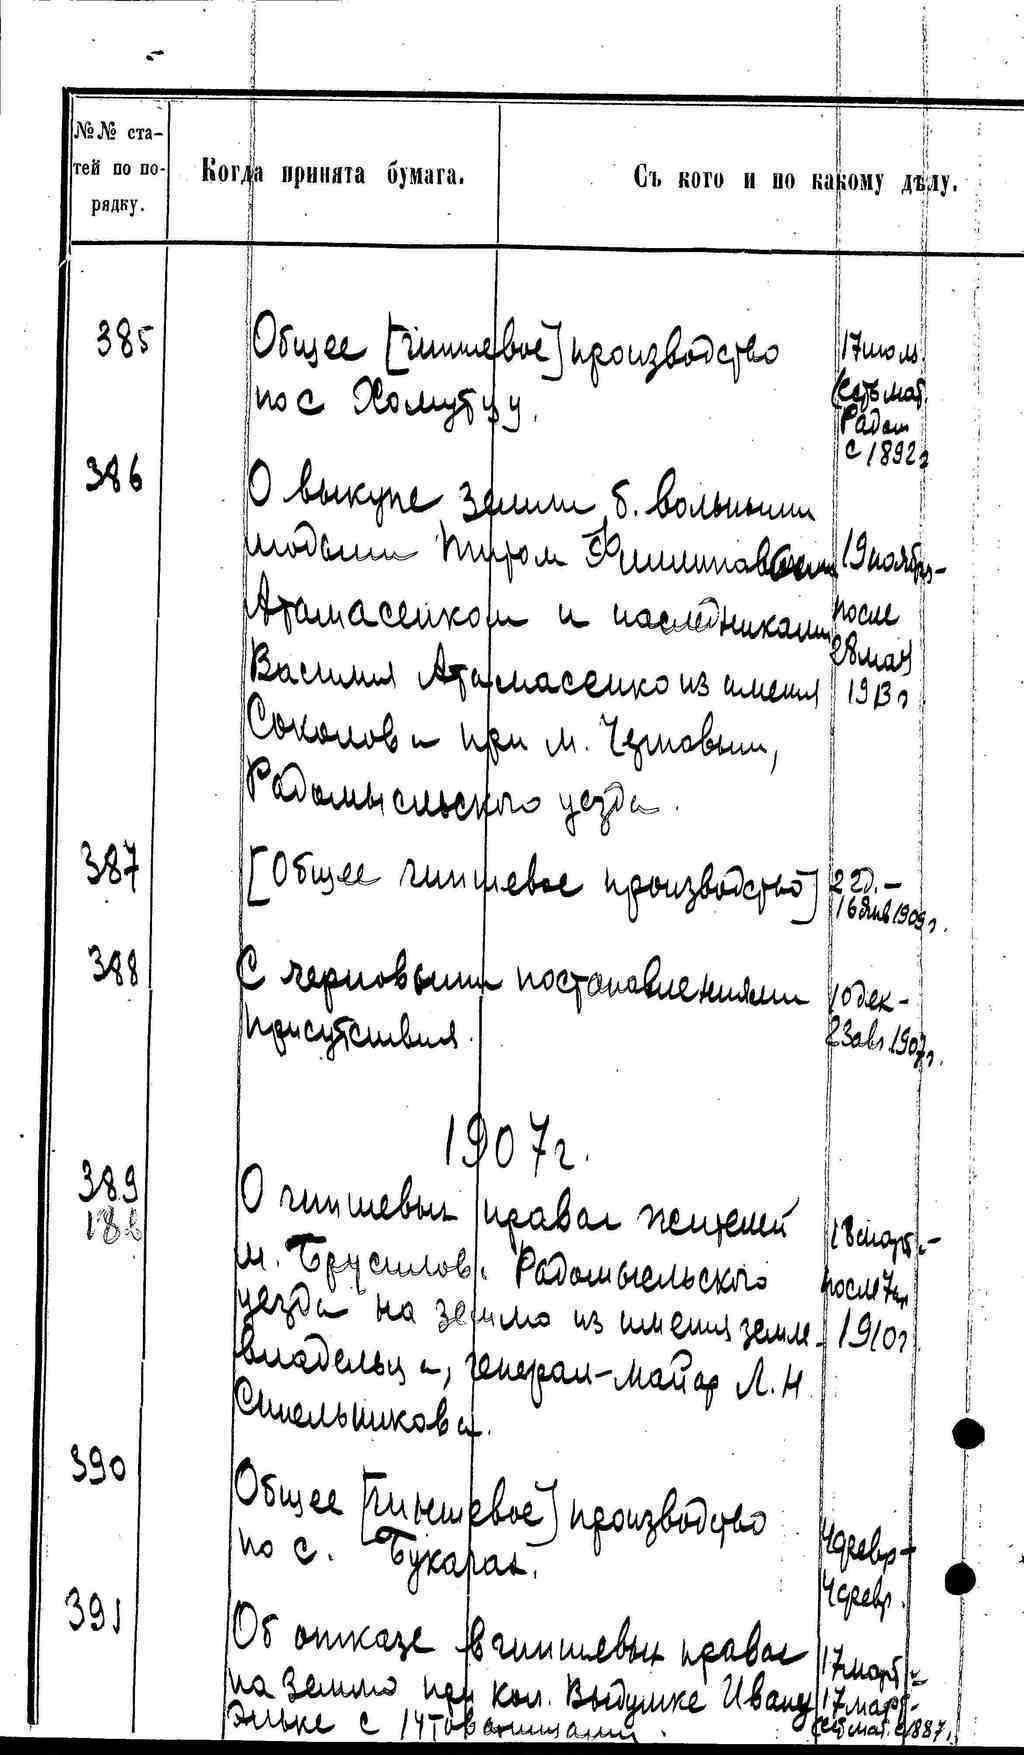 №№ ста-
тей по по-
рядку.
Когда принята бумага.
Съ кого и по какому дѣлу.
385
Общее [чиншевое] производство
по с Хомутцу.
17 июль
(есть мат.
Радом
с 1892 г
386
О выкупе земли б. вольными
людьми Титом Филипповичем
Атамасенком и наследниками
Василия Атамасенко из имения
Соколова при м. Чернобыли,
Радомысльского уезда.
19 ноября-
после
28 мая
1913 г
387
[Общее чиншевое производство]
22 д. –
16 янв 1909 г.
388
С черновыми постановлениями
присутствия.
10 дек –
23 авг. 1907 г.
1907 г.
389
188
О чиншевых правах жителей
м. Брусилова Радомысльского
уезда на землю из имения земле-
владельца, генерал-майор Л. Н
Синельникова.
18 март. –
после 7
1910 г
390
Общее [чиншевое] производство
по с. Буках.
4 февр –
4 февр.
391
Об отказе в чиншевых правах
на землю при кол. Выдумке Ивану
Эльке с 14 товарищами.
17 март –
17 март.
(есть мат. с 1887 г.